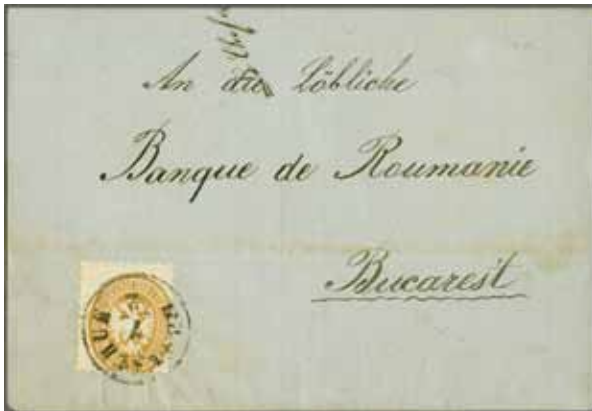 An die Löbliche
Banque de Roumanie
Bucarest